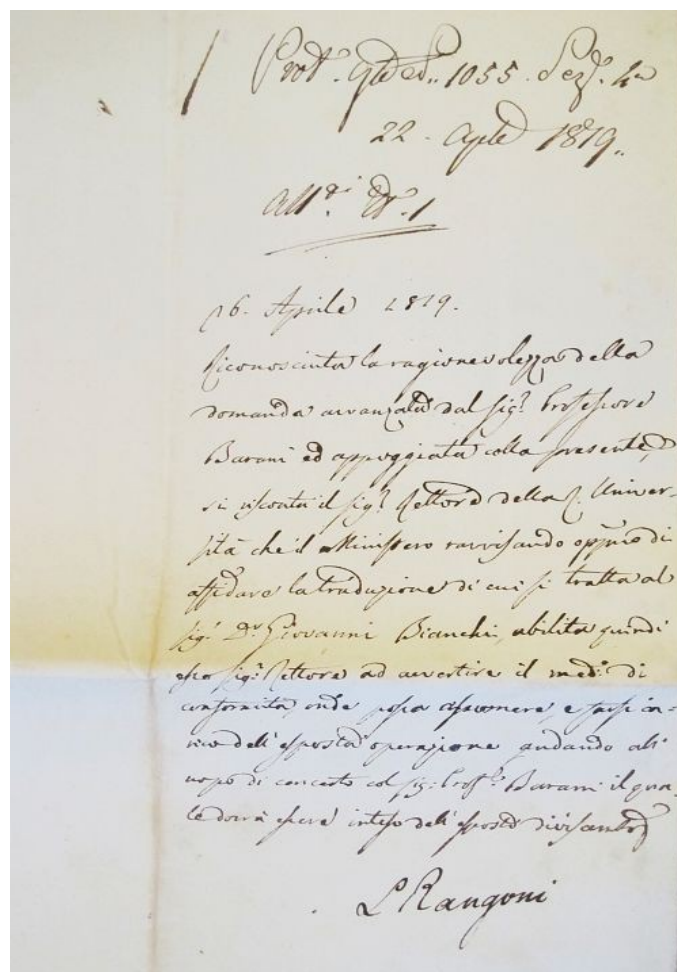 Prot. Gle ed.. 1055. Sez. 4a
22. Aple 1819..
All.ti N. 1
26. Aprile 1819.
Riconosciuta la ragionevolezza della
domanda avanzata dal Sig.r Professore
Barani ed appoggiata colla presente,
si riscontra il Sig.r Rettore della R. Univer-
sità che il Ministero ravvisando opp.no di
affidare la traduzione di cui si tratta al
Sig.r D.r Giovanni Bianchi, abilita quindi
esso Sig.r Rettore ad avvertire il med.o di
conformità, onde possa assumere, e farsi ca-
rico dell'esposta operazione andando all'
uopo di concerto col Sig.r Prof.e Barani il qua-
le dovrà essere inteso dell'esposto divisamto
L Rangoni